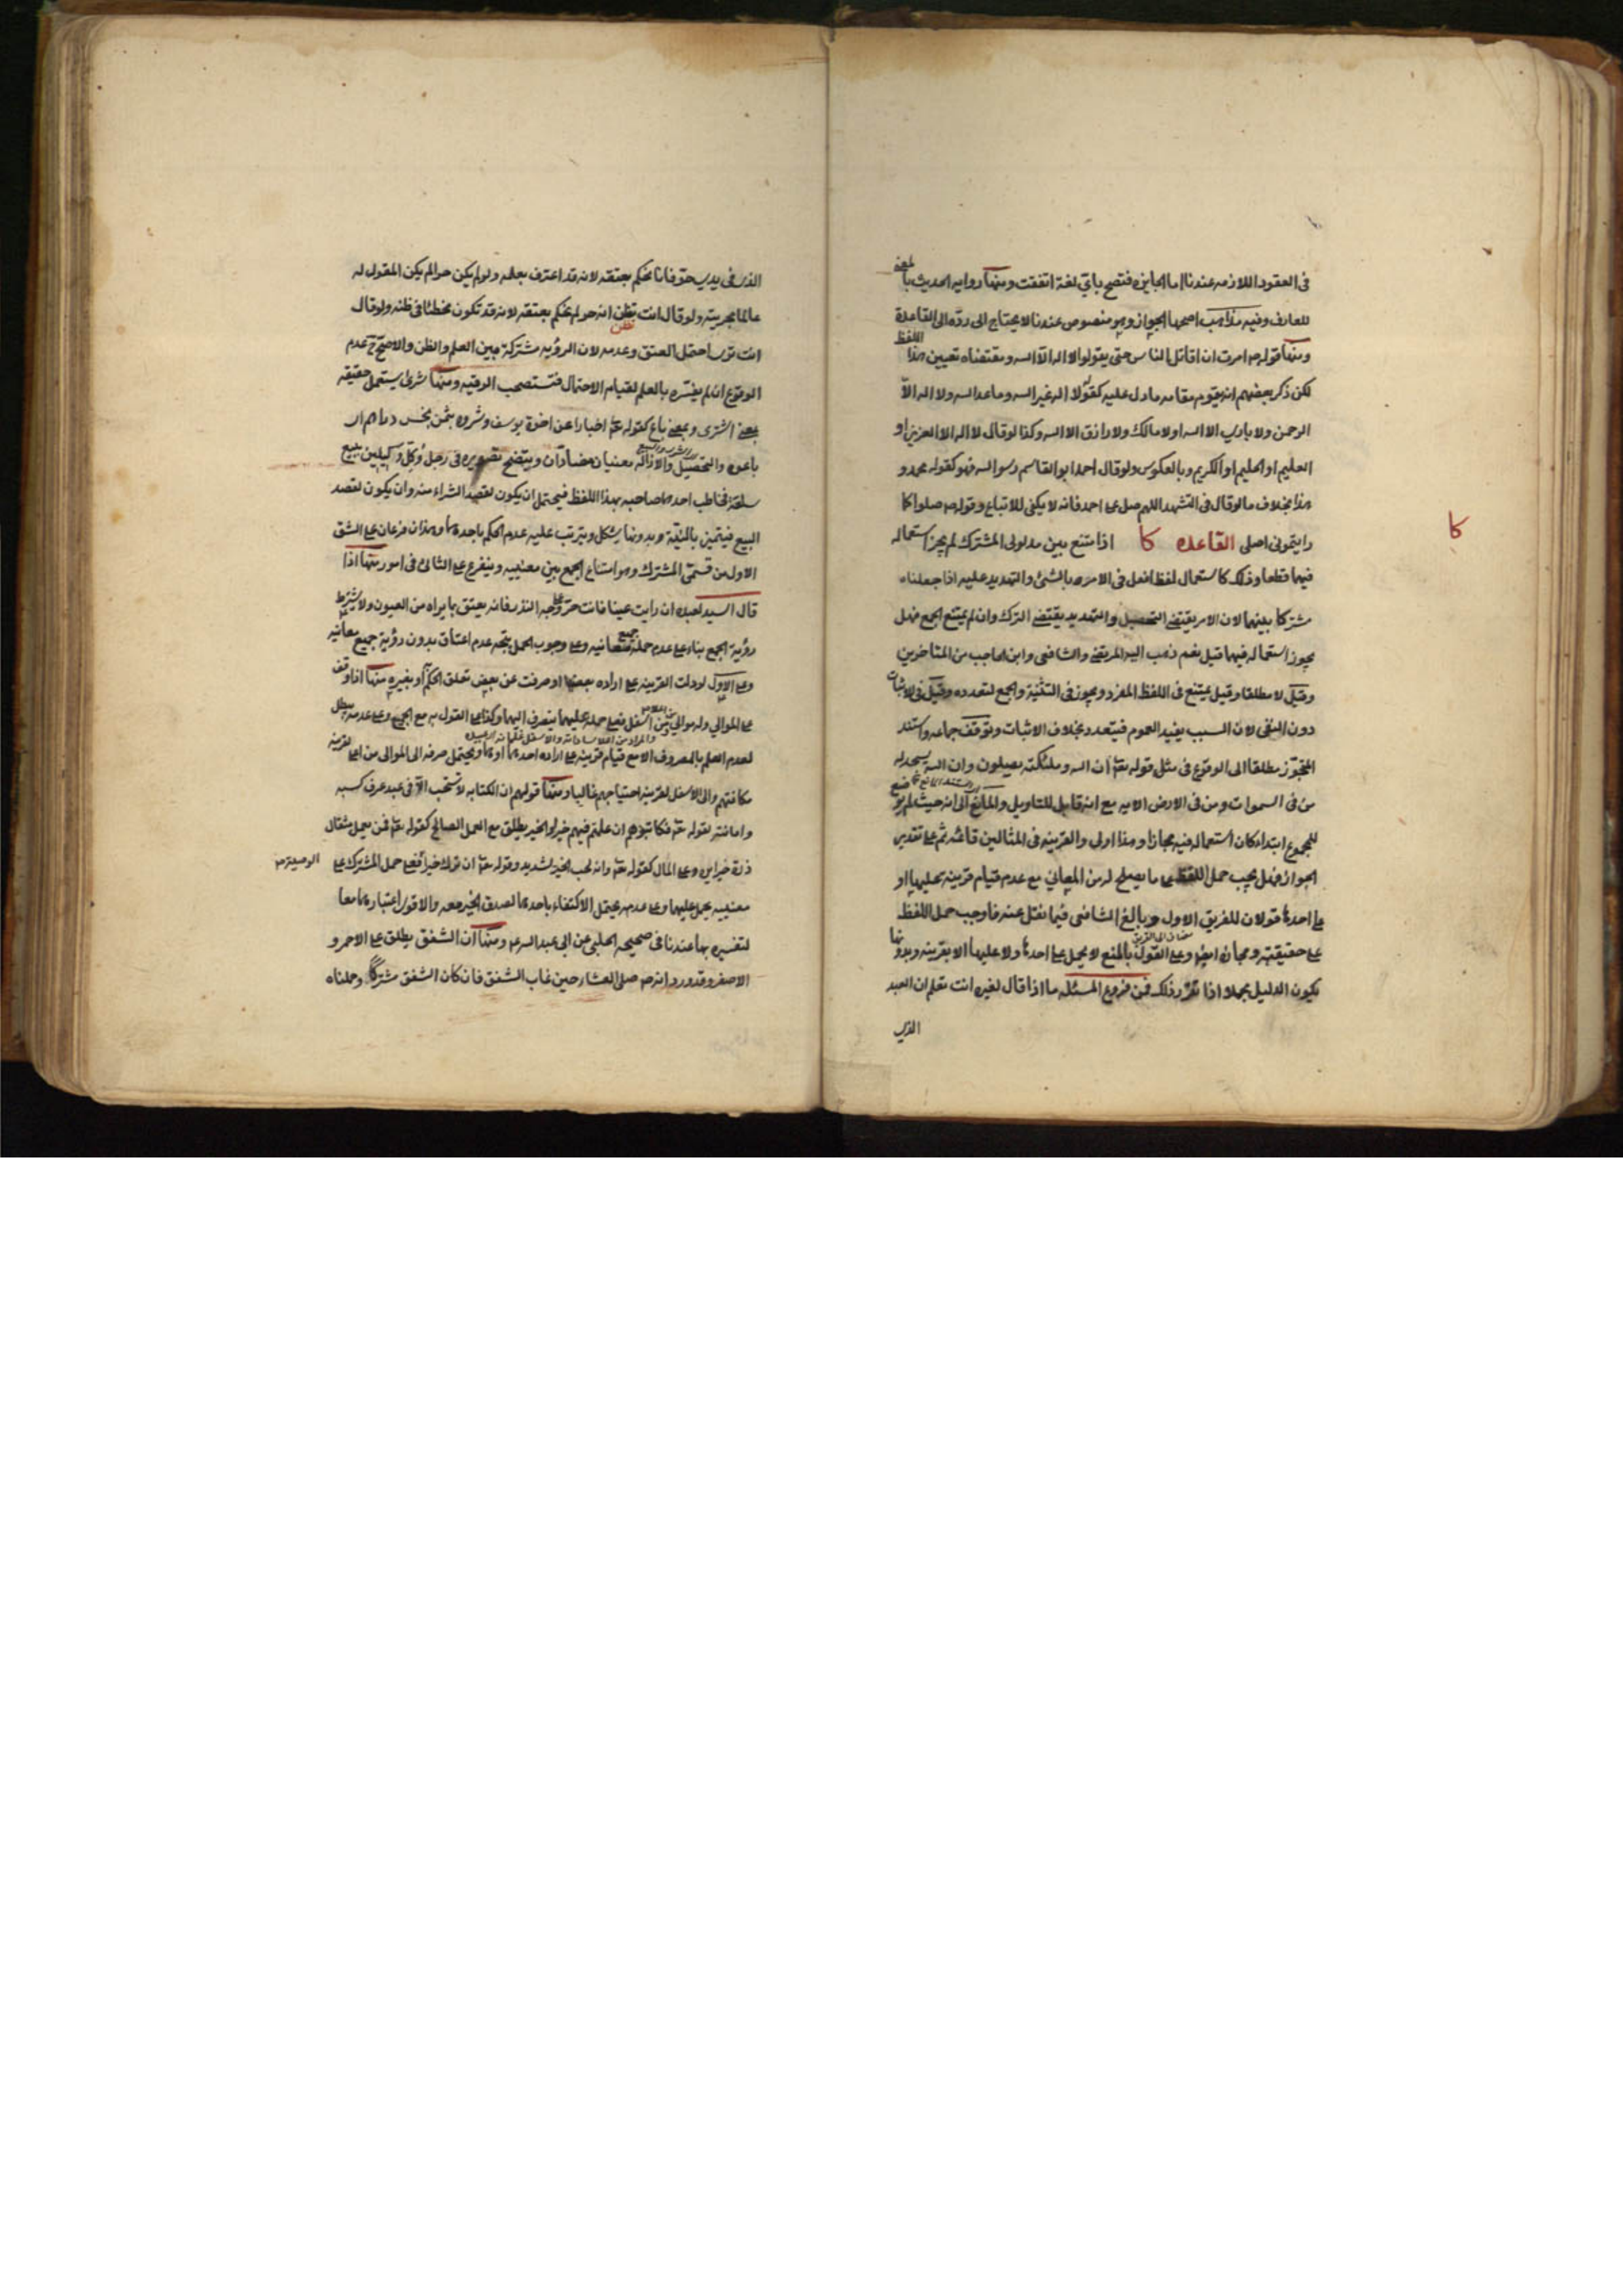 في العقود اللازمه عندنا اما الجايزه فتصح باي لغة اتفقت ومنها رواية الحديث بالمعنى
للعارف وفيه مذاهب اصحها الجواز وهو منصوص عندنا لا يحتاج الى رده الى القاعدة
ومنها قوله ص امرت ان اقاتل الناس حتى يقولوا لا اله الا الله ومقتضاه تعيين هذا اللفظ
لكن ذكر بعضهم انه يقوم مقامه ما دل عليه كقوله لا اله غير الله وما عدا الله ولا اله الا
الرحمن ولا باري الا الله او لا مالك ولا رازق الا الله وكذا لو قال لا اله الا العزيز او
العليم او الحليم او الكريم وبالعكوس ولو قال احمد ابو القاسم رسول الله فهو كقوله محمد و
هذا بخلاف ما لو قال في التشهد اللهم صل على احمد فانه لا يكفي للاتباع وقوله ص صلوا كما
رايتموني اصلي القاعده كا اذا امتنع بين مدلولي المشترك لم يجز استعماله
كا
فيهما قطعا وذلك كاستعمال لفظ افعل في الامر بالشئ والتهديد عليه اذا جعلناه
مشتركا بينهما لان الامر يقتضي التحصيل والتهديد يقتضي الترك وان لم يمتنع الجمع فهل
يجوز استعماله فيهما قيل نعم ذهب اليه المرتضى والشافعي وابن الحاجب من المتاخرين
وقيل لا مطلقا وقيل يمتنع في اللفظ المفرد ويجوز في التثنية والجمع لتعدده وقيل في الاثبات
دون النفي لان السبب يفيد العموم فيتعدد بخلاف الاثبات وتوقف جماعه واستند
المجوز مطلقا الى الوقوع في مثل قوله تعالى ان الله وملئكته يصلون وان الله يسجد له
من في السموات ومن في الارض الايه مع انه قابل للتاويل والمانع الى انه حيث لم يوضع
للمجموع ابتداء كان استعماله فيه مجازا وهذا اولى والقرينه في المثالين قائمه ثم على تقدير
الجواز فهل يجب حمل اللفظ على ما يصلح له من المعاني مع عدم قيام قرينه عليها او
على احدها قولان للفريق الاول وبالغ الشافعي فيما نقل عنه فاوجب حمل اللفظ
على حقيقته ومجازه ايضا وعلى القول بالمنع لا يحمل على احدها ولا عليهما الا بقرينه وبدونها
يكون الدليل مجملا اذا تقرر ذلك فمن فروع المسئله ما اذا قال لغيره انت تعلم ان العبد
الذي
الذي في يدي حر فانا نحكم بعتقه لانه قد اعترف بعلمه ولو لم يكن حرا لم يكن المقول له
عالما بحريته ولو قال انت تظن انه حر لم نحكم بعتقه لانه قد تكون مخطئا في ظنه ولو قال
تظن
انت ترى احتمل العتق وعدمه لان الرؤيه مشتركة بين العلم والظن والاصح ح عدم
الوقوع ان لم يفسره بالعلم لقيام الاحتمال فتستصحب الرقيه ومنها شرى يستعمل حقيقه
بمعنى اشترى وبمعنى باع كقوله تعالى اخبارا عن اخوة يوسف وشروه بثمن بخس دراهم اي
باعوه والتحصيل والازاله معنيان متضادان ويتضح تصويره في رجل وكل وكيلين ببيع
سلعة فخاطب احدهما صاحبه بهذا اللفظ فيحتمل ان يكون لقصد الشراء منه وان يكون لقصد
البيع فيتميز بالنية وبدونها يشكل ويترتب عليه عدم الحكم باحدهما وهذان فرعان على الشق
الاول من قسمي المشترك وهو امتناع الجمع بين معنييه ويتفرع على الثاني في امور منها اذا
قال السيد لعبده ان رايت عينا فانت حر وعلى وجه النذر فانه يعتق بما يراه من العيون ولا يشترط
رؤية الجمع بناء على عدم حمله على جميع معانيه وعلى وجوب الحمل يتجه عدم اعتاق بدون رؤية جميع معانيه
وعلى الاول لو دلت القرينه على اراده بعضها او صرفت عن بعض تعلق الحكم به او بغيره منها اذا وقف
على الموالي وله موالي من اعلى ومن اسفل فعلى حمله عليهما ينصرف اليهما وكذا على القول به مع الجمع وعلى عدمه يبطل
لعدم العلم بالمصروف الا مع قيام قرينه على اراده احدهما او هما ويحتمل صرفه الى الموالي من اعلى لقرينة
مكافتهم والى الاسفل لقرينه احتياجهم غالبا ومنها قولهم ان الكتابه لا تستحب الا في عبد عرف كسبه
وامانته لقوله تعالى فكاتبوهم ان علمتم فيهم خيرا والخير يطلق مع العمل الصالح كقوله تعالى فمن يعمل مثقال
ذرة خيرا يره وعلى المال كقوله تعالى وانه لحب الخير لشديد وقوله تعالى ان ترك خيرا فعلى حمل المشترك على
الوصية ص
معنييه يحمل عليهما وعلى عدمه يحتمل الاكتفاء باحدهما لصدق الخير معه والاقوى اعتبارهما معا
لتفسيره بهما عندنا في صحيحه الحلبي عن ابي عبد الله ع ومنها ان الشفق يطلق على الاحمر و
الاصفر وقد ورد انه ص صلى العشاء حين غاب الشفق فان كان الشفق مشتركا وحملناه